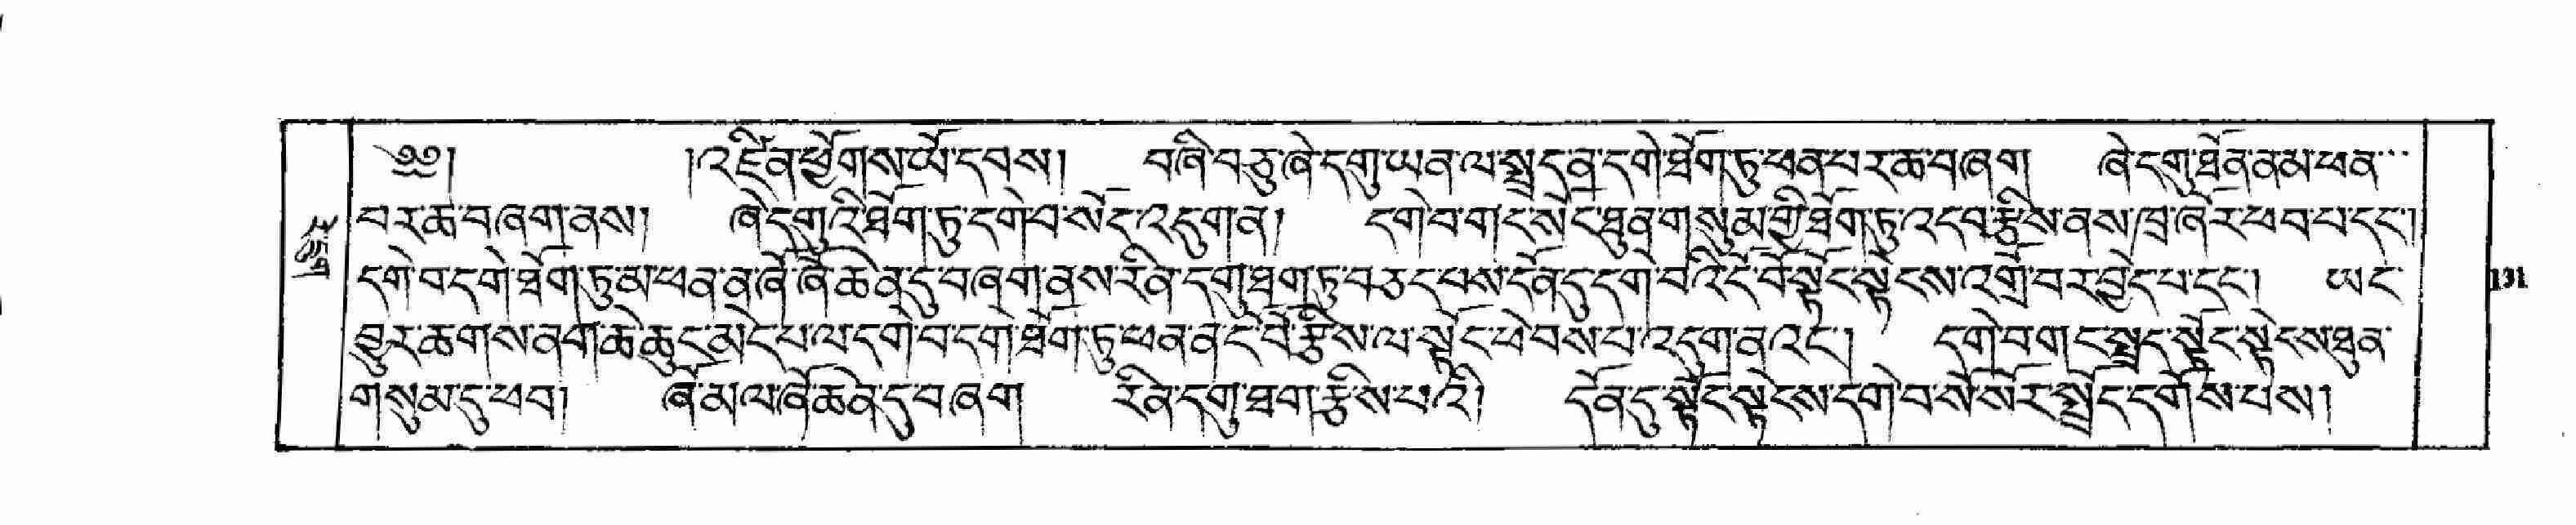 ༄༅། །འཛིན་ཕྱོགས་ཡོ་དབས། བཞི་བཅུ་ཞེ་དགུ་ཡན་ལ་སྤྲད་ན་དགེ་ཐོག་ཏུ་ཕན་པར་ཆ་བཞག ཞེ་དགུ་ཐོན་ནམ་ཕན་་་
བར་ཆ་བཞག་ནས། ཞེ་དགུའི་ཐོག་ཏུ་དགེ་བ་སོང་འདུག་ན། དགེ་བ་གང་སོང་ཐུན་གསུམ་གྱི་ཐོག་ཏུ་འདབ་རྩིས་ནས་ཁྲ་ཞོར་ཕབ་པ་དང་།
དགེ་བ་དགེ་ཐོག་ཏུ་མ་ཕན་ན་ཞོ་ཞོ་ཆེན་དུ་བཞག་ནས་རིན་དགུ་ཐག་ཏུ་བཅད་པས་དོན་དུ་དགེ་བའི་ངོ་བོ་སྟོང་སྟེངས་འགྲོ་བར་བྱེད་པ་དང་། ཡང་
བྱུར་ཆགས་ནག་ཆེ་ཆུང་མེད་པ་ལ་དགེ་བ་དགེ་ཐོག་ཏུ་ཕན་ན་ངོ་བོ་རྩིས་ལ་སྟོང་ཕེབས་པ་འདུག་ནའང་། དགེ་བ་གང་སྤྲད་སྟོང་སྟེངས་ཐུན་
གསུམ་དུ་ཕབ། ཞོ་མ་ལ་ཞོ་ཆེན་དུ་བཞག རིན་དགུ་ཐག་རྩིས་པའི། དོན་དུ་སྟོང་སྟེངས་དགེ་བ་སོ་སོར་སྤྲོད་དགོས་པས།
131